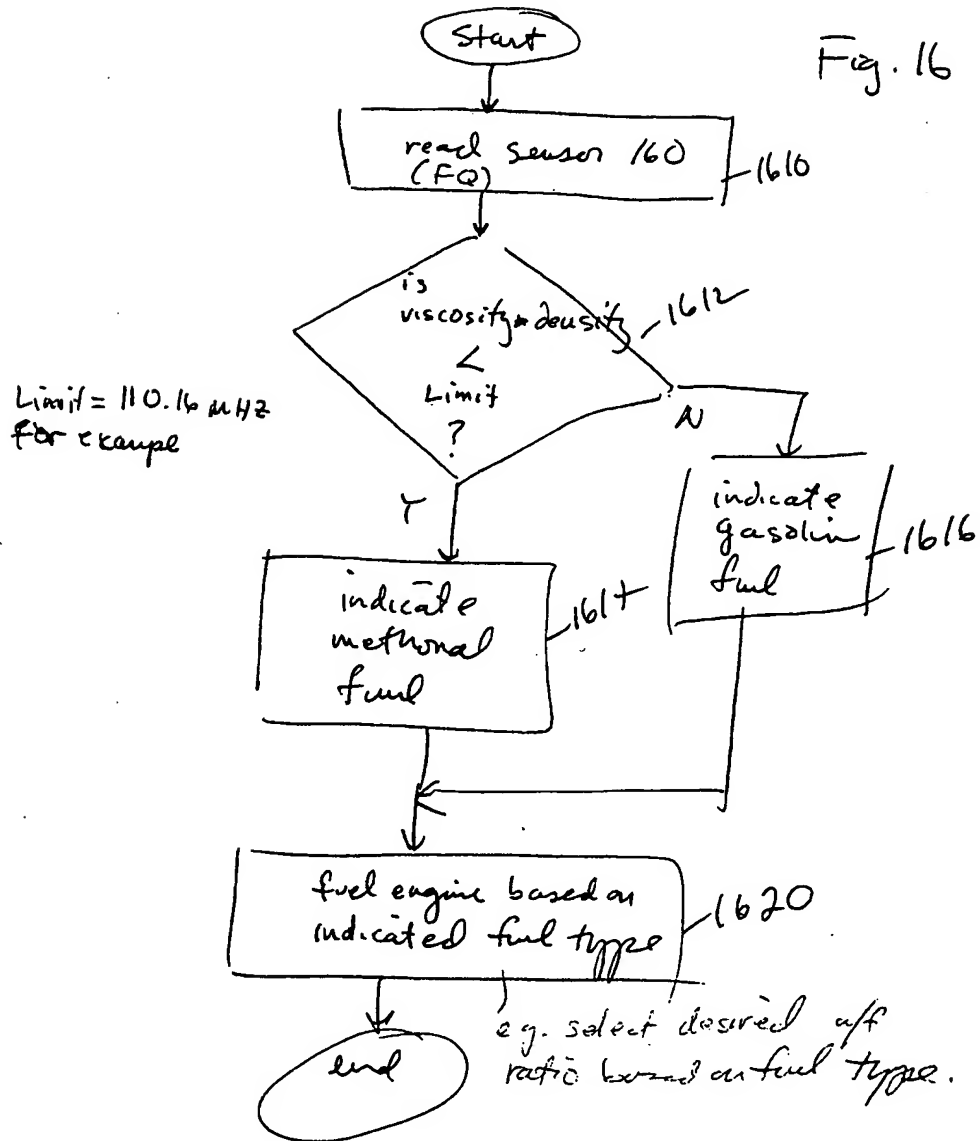 Start
Fig. 16
read sensor 160
(FQ)
1610
is
viscosity * density
<
Limit
?
1612
Limit = 110.16 MHZ
for exampe
N
Y
indicate
gasolin
fuel
1616
indicate
methonal
fuel
1614
fuel engine based on
indicated fuel type
1620
e.g. select desired a/f
ratio based on fuel type.
end